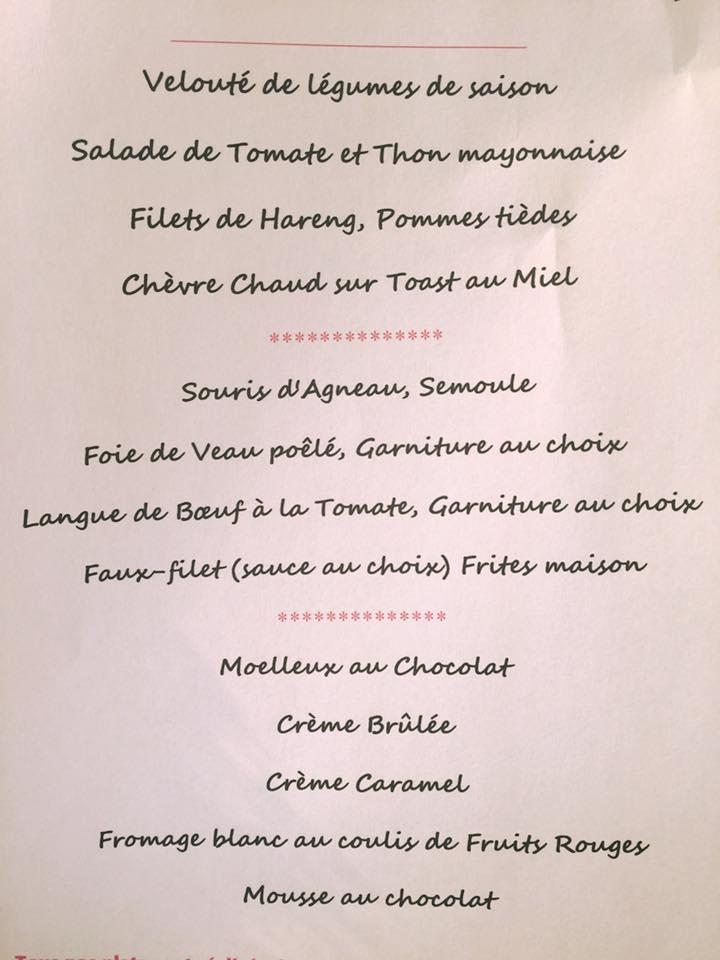 Velouté de légumes de saison
Salade de Tomate et Thon mayonnaise
Filets de Hareng, Pommes tièdes
Chèvre Chaud sur Toast au Miel
**************
Souris d'Agneau, Semoule
Foie de Veau poêlé, Garniture au choix
Langue de Bœuf à la Tomate, Garniture au choix
Faux-filet (sauce au choix) Frites maison
**************
Moelleux au Chocolat
Crème Brûlée
Crème Caramel
Fromage blanc au coulis de Fruits Rouges
Mousse au chocolat